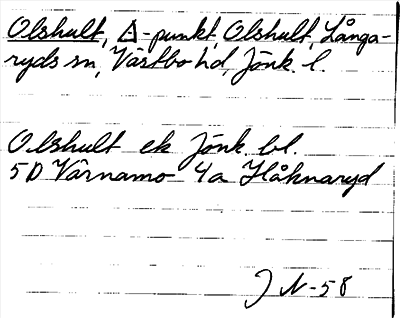 Olshult, Δ-punkt, Olshult, Långa-
ryds sn, Västbo hd, Jönk. l.
Olshult ek Jönk. bl.
5D Värnamo 4a Håknaryd
J N-58